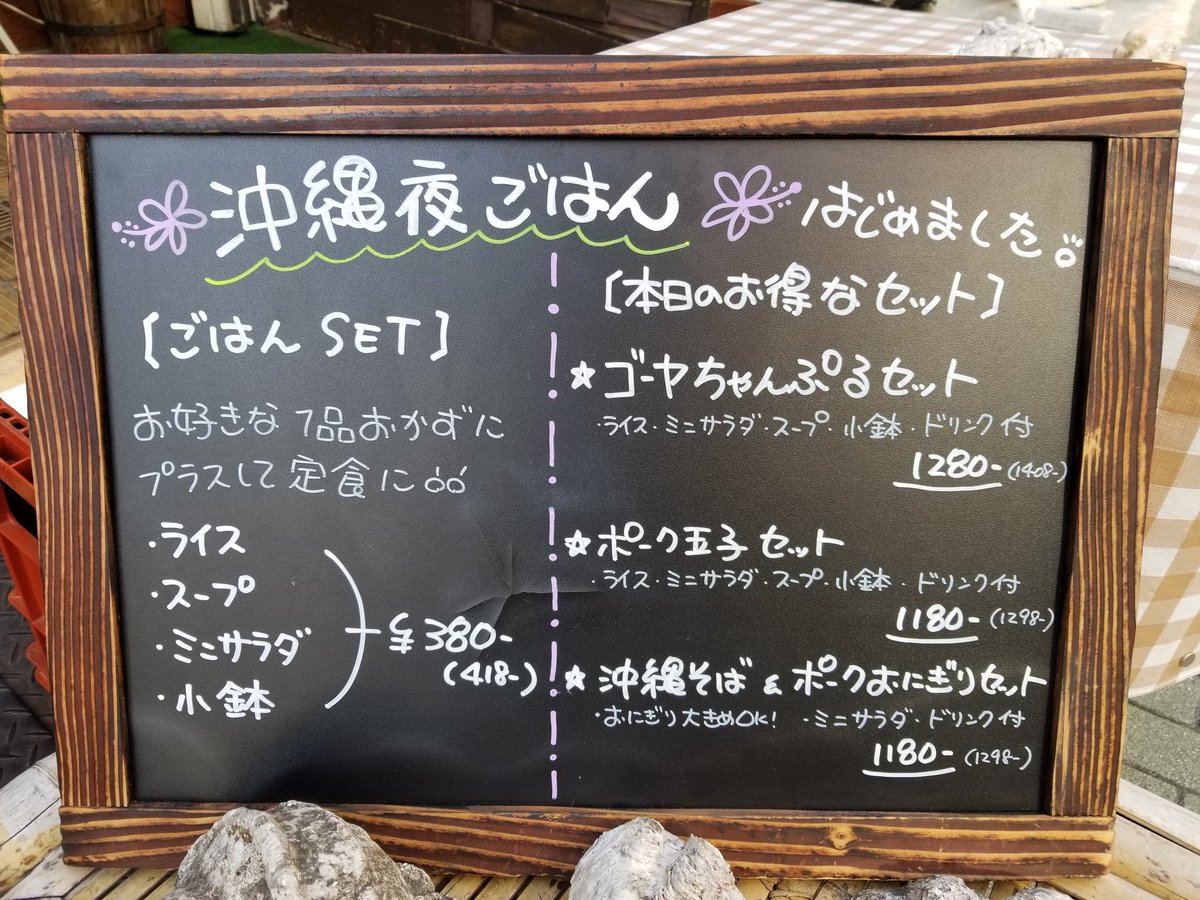 沖縄夜ごはん はじめました。
[ごはんSET]
お好きな1品おかずに
プラスして定食に
・ライス
・スープ
・ミニサラダ
・小鉢
¥380-
(418-)
[本日のお得なセット]
☆ゴーヤちゃんぷるセット
・ライス・ミニサラダ・スープ・小鉢・ドリンク付
1280-(1408-)
☆ポーク玉子セット
・ライス・ミニサラダ・スープ・小鉢・ドリンク付
1180-(1298-)
☆沖縄そば&ポークおにぎりセット
・おにぎり大きめOK! ・ミニサラダ・ドリンク付
1180-(1298-)